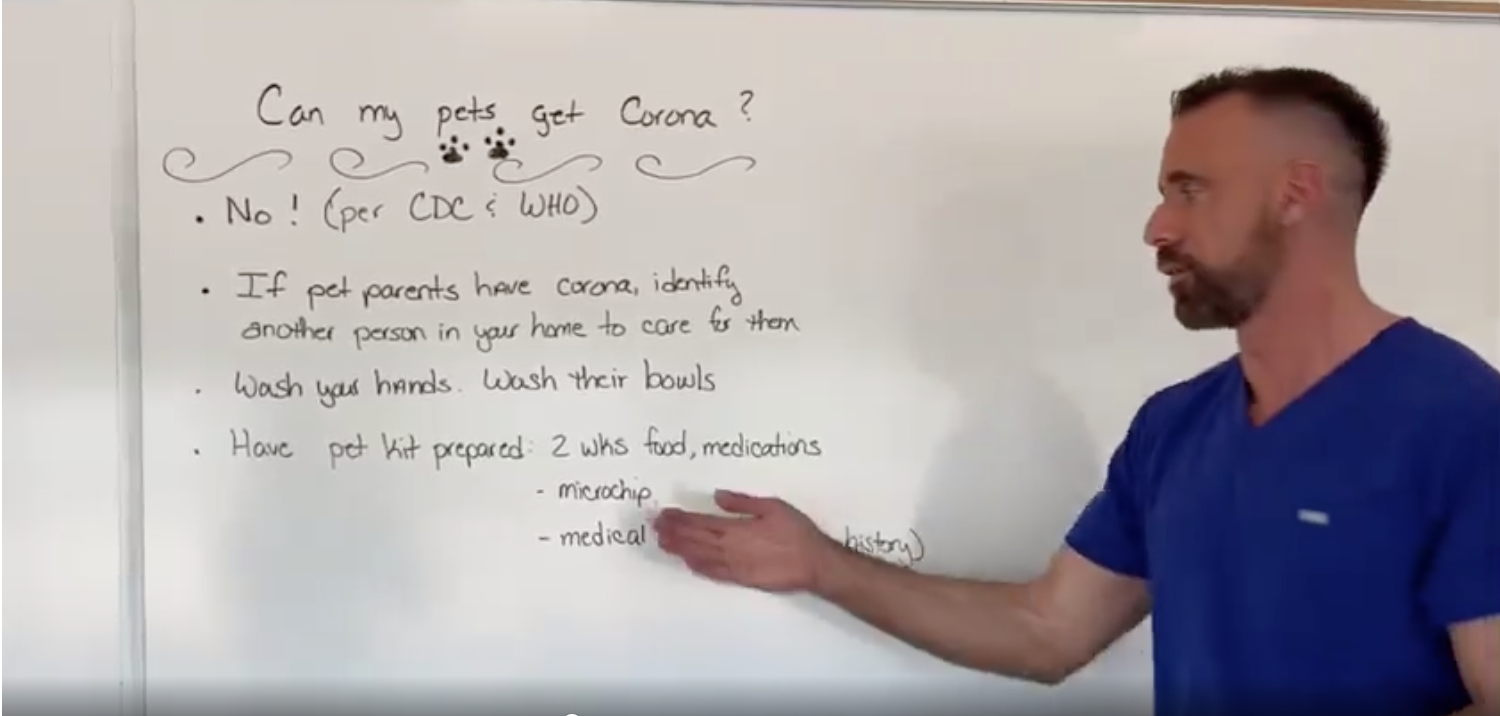 Can my pets get Corona?
• No! (per CDC & WHO)
• If pet parents have corona, identify
another person in your home to care for them
• Wash your hands. Wash their bowls
• Have pet kit prepared: 2 wks food, medications
- microchip
- medical history)